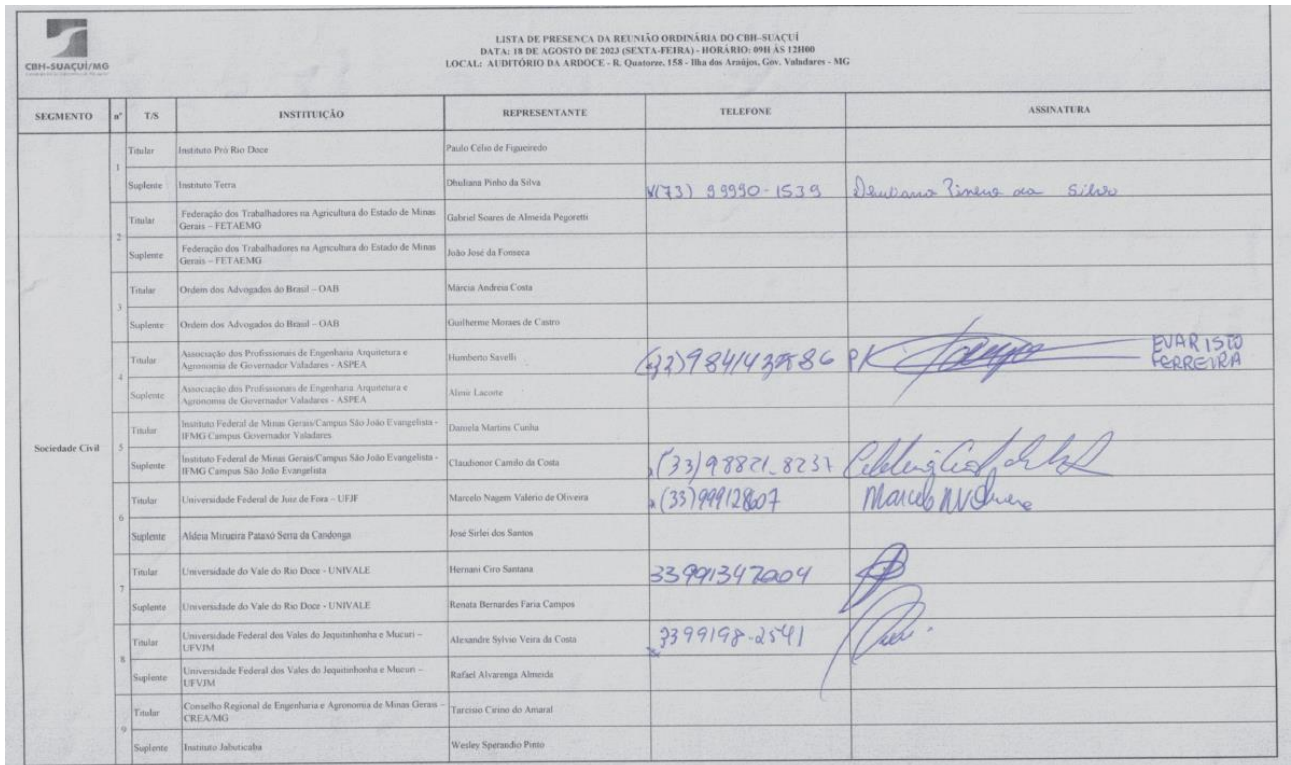 CBH-SUAÇUÍ/MG
LISTA DE PRESENÇA DA REUNIÃO ORDINÁRIA DO CBH-SUAÇUÍ
DATA: 18 DE AGOSTO DE 2023 (SEXTA-FEIRA) - HORÁRIO: 09H ÀS 12H00
LOCAL: AUDITÓRIO DA ARDOCE - R. Quatorze, 158 - Ilha dos Araújos, Gov. Valadares - MG
SEGMENTO nº T/S INSTITUIÇÃO REPRESENTANTE TELEFONE ASSINATURA
Sociedade Civil
1
Titular Instituto Pró Rio Doce Paulo Célio de Figueiredo
Suplente Instituto Terra Dhuliana Pinho da Silva (73) 99990-1539 da Silva
2
Titular Federação dos Trabalhadores na Agricultura do Estado de Minas
Gerais – FETAEMG Gabriel Soares de Almeida Pegoretti
Suplente Federação dos Trabalhadores na Agricultura do Estado de Minas
Gerais – FETAEMG João José da Fonseca
3
Titular Ordem dos Advogados do Brasil – OAB Márcia Andreia Costa
Suplente Ordem dos Advogados do Brasil – OAB Guilherme Moraes de Castro
4
Titular Associação dos Profissionais de Engenharia Arquitetura e
Agronomia de Governador Valadares - ASPEA Humberto Savelli EVARISTO
FERREIRA
Suplente Associação dos Profissionais de Engenharia Arquitetura e
Agronomia de Governador Valadares - ASPEA Almir Lacorte
5
Titular Instituto Federal de Minas Gerais/Campus São João Evangelista -
IFMG Campus Governador Valadares Daniela Martins Cunha
Suplente Instituto Federal de Minas Gerais/Campus São João Evangelista -
IFMG Campus São João Evangelista Claudionor Camilo da Costa (33)98821-8237
6
Titular Universidade Federal de Juiz de Fora – UFJF Marcelo Nagem Valério de Oliveira (33)999128607 Marcelo
Suplente Aldeia Mirueira Pataxó Serra da Candonga José Sirlei dos Santos
7
Titular Universidade do Vale do Rio Doce - UNIVALE Hernani Ciro Santana 33991347004
Suplente Universidade do Vale do Rio Doce - UNIVALE Renata Bernardes Faria Campos
8
Titular Universidade Federal dos Vales do Jequitinhonha e Mucuri –
UFVJM Alexandre Sylvio Veira da Costa 3399198-2541
Suplente Universidade Federal dos Vales do Jequitinhonha e Mucuri –
UFVJM Rafael Alvarenga Almeida
9
Titular Conselho Regional de Engenharia e Agronomia de Minas Gerais –
CREA/MG Tarcisio Cirino do Amaral
Suplente Instituto Jabuticaba Wesley Sperandio Pinto